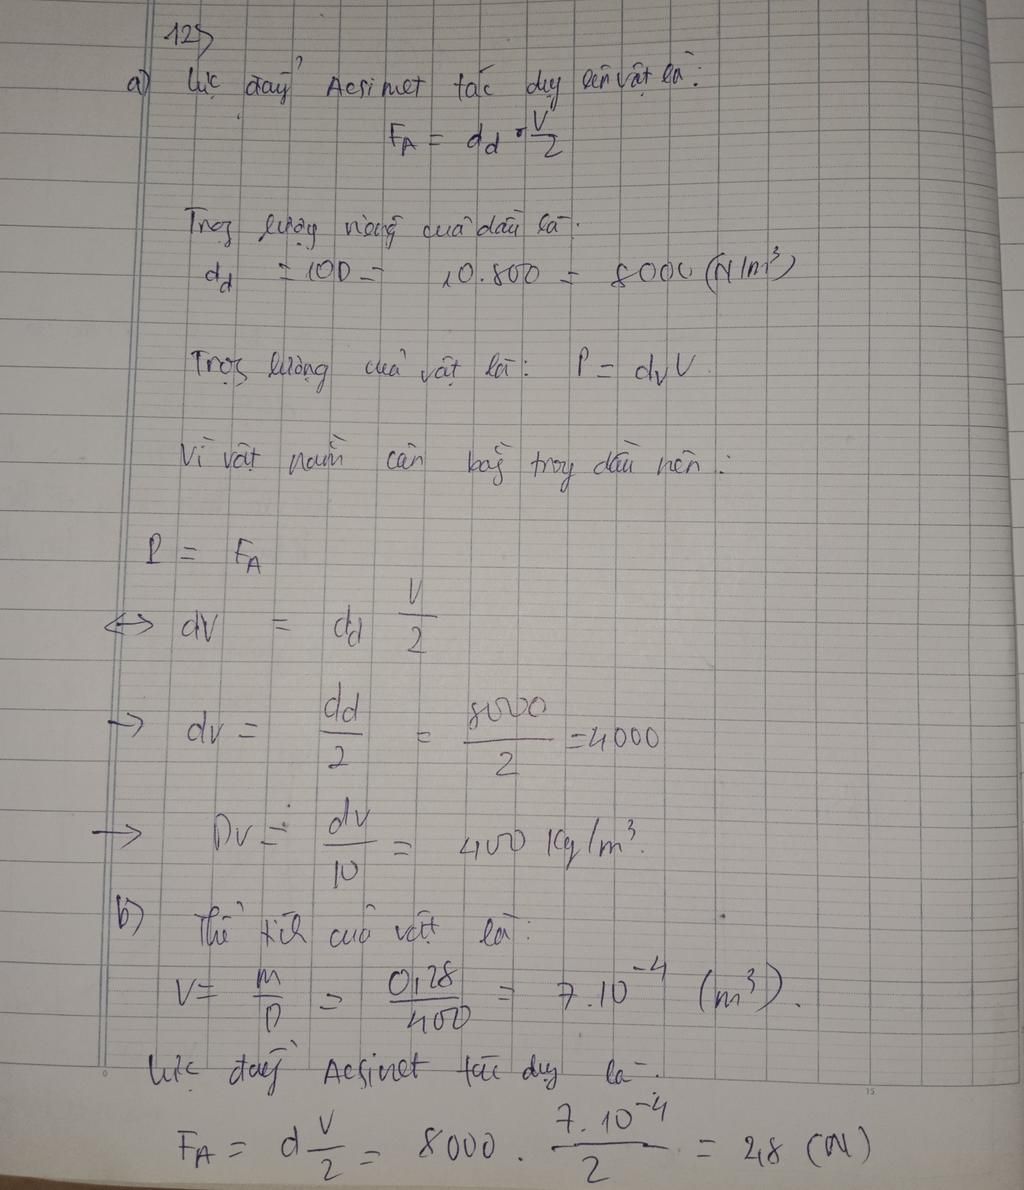 12)
a) Lực đẩy Acsimet tác dụng lên vật là:
F_A = d_d . V/2
Trọng lượng riêng của dầu là:
d_d = 10D = 10.800 = 8000 (N/m³)
Trọng lượng của vật là: P = d_v V
Vì vật nằm cân bằng trong dầu nên:
P = F_A
<-> dV = d_d V/2
-> dv = dd/2 = 8000/2 = 4000
-> Dv = dv/10 = 400 Kg/m³.
b) Thể tích của vật là:
V = m/D = 0,28/400 = 7.10⁻⁴ (m³).
Lực đẩy Acsimet tác dụng là:
F_A = d V/2 = 8000 . 7.10⁻⁴/2 = 2,8 (N)